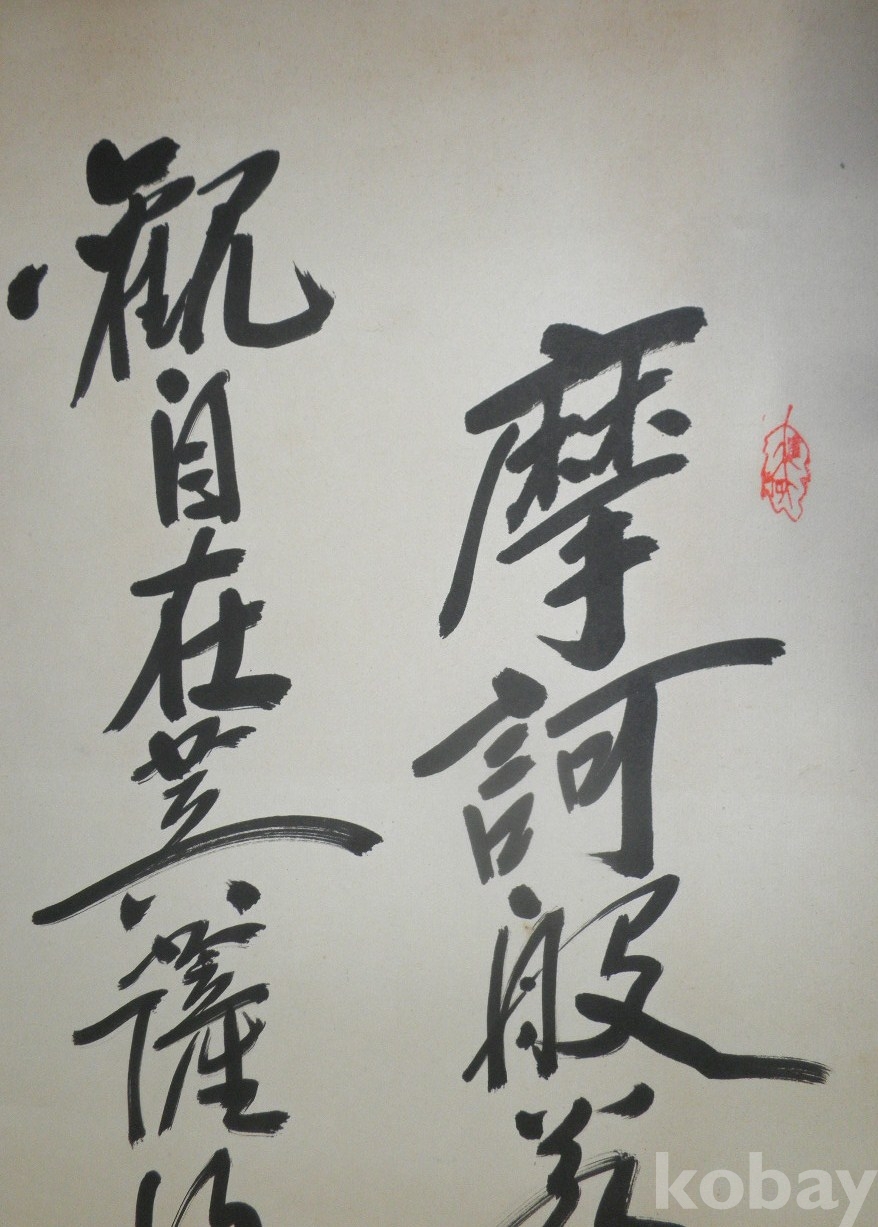 摩訶般若
觀自在菩薩
kobay